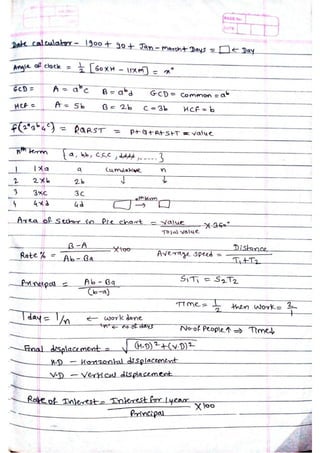 Date calculator - 1900 + 90 + Jan - month + Days = □ ← Day
Angle of clock = 1/2 [60xH - 11xm] = x°
GCD = A = a^b c B = a^b d GCD = common = a^b
HCF = A = 5b B = 2b C = 3b HCF = b
f(2^a 3^b 4^c) = PQRST = P+Q+R+S+T = value
nth term [a, bb, ccc, dddd, .....]
1 1xa a cumulative n
2 2xb 2b ↓ ↓
3 3xc 3c nth term
4 4xd 4d □ → □
Area of Sector in Pie chart = value / Total value X 360°
Rate % = B-A / Ab-Ba X100 Average speed = Distance / T1+T2
Principal = Ab-Ba / (b-a) S1T1 = S2T2
1 day = 1/n ← work done 'n' ← no of days
Time = 1/2 then work = 2/1
No of People ↑ ⇒ Time ↓
Final displacement = √(H.D)²+(V.D)²
H.D - Horizontal displacement
V.D - Vertical displacement
Rate of Interest = Interest for 1 year / Principal X100